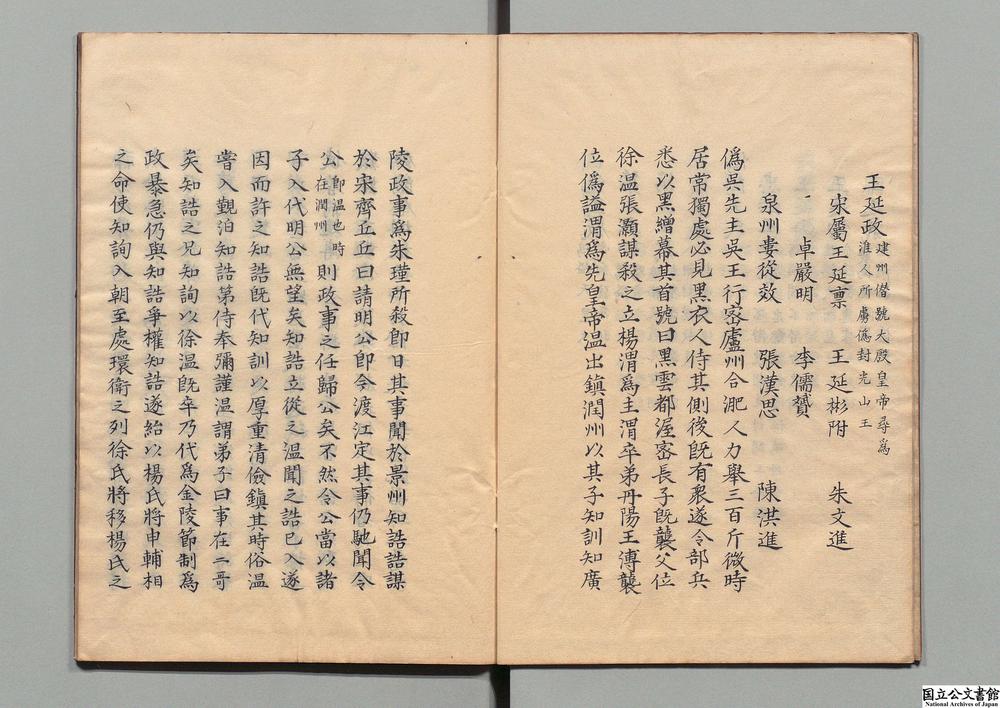 王延政建州僭號大殷皇帝尋為
淮人所虜偽封光山王
宋屬王延禀　王延彬附　朱文進
卓嚴明　李儒贇
泉州婁從效　張漢思　陳洪進
偽吳先主吳王行宻廬州合淝人力舉三百斤微時
居常獨處必見黑衣人侍其側後既有衆遂令部兵
悉以黑繒幕其首號曰黑雲都渥宻長子既襲父位
徐温張灝謀殺之立楊渭為主渭卒弟丹陽王溥襲
位偽謚渭為先皇帝温出鎮潤州以其子知訓知廣
陵政事為朱瑾所殺即日其事聞於景州知誥誥謀
於宋齊丘丘曰請明公即令渡江定其事仍馳聞令
公即温也時
在潤州則政事之任歸公矣不然令公當以諸
子入代明公無望矣知誥立從之温聞之誥已入遂
因而許之知誥既代知訓以厚重清儉鎮其時俗温
嘗入覲泊知誥第侍奉彌謹温謂弟子曰事在二哥
矣知誥之兄知詢以徐温既卒乃代為金陵節制為
政暴急仍與知誥爭權知誥遂紿以楊氏將申輔相
之命使知詢入朝至處環衛之列徐氏將移楊氏之
国立公文書館
National Archives of Japan